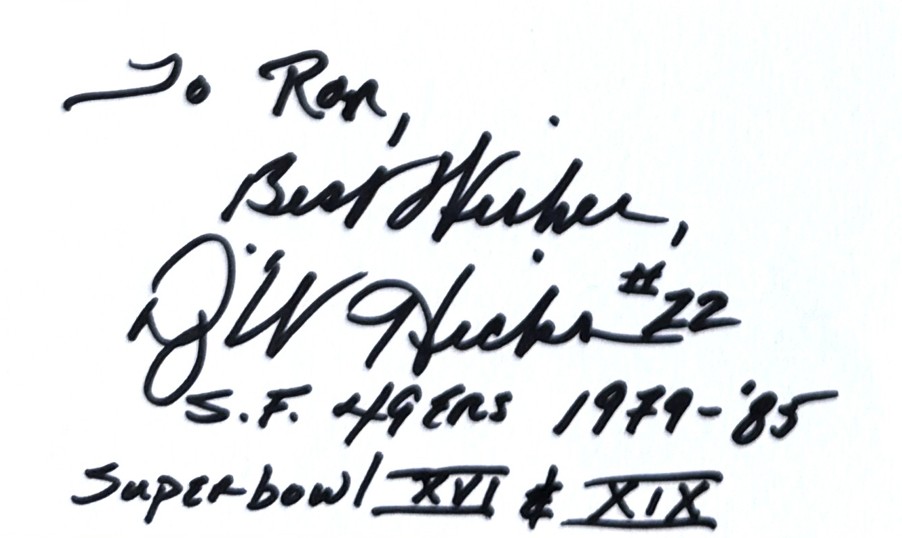 To Ron,
Best Wishes,
D.W. Hicks #22
S.F. 49ERS 1979-'85
Superbowl XVI & XIX